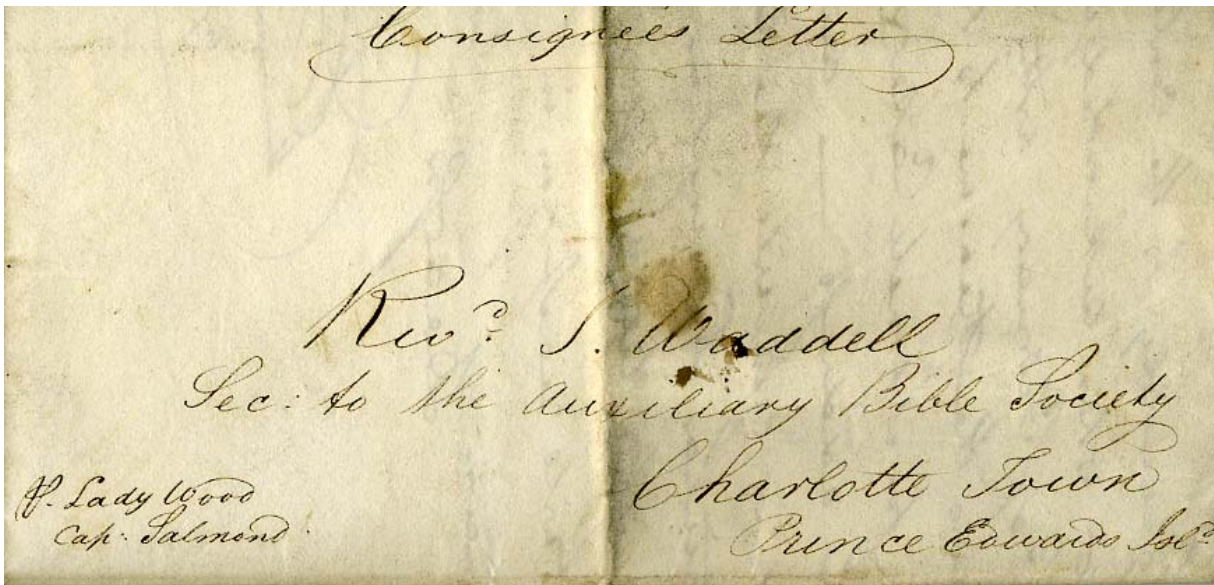 Consignees Letter
Revd. J. Waddell
Sec: to the Auxiliary Bible Society
Charlotte Town
Prince Edwards Isld
P. Lady Wood
Cap: Salmond